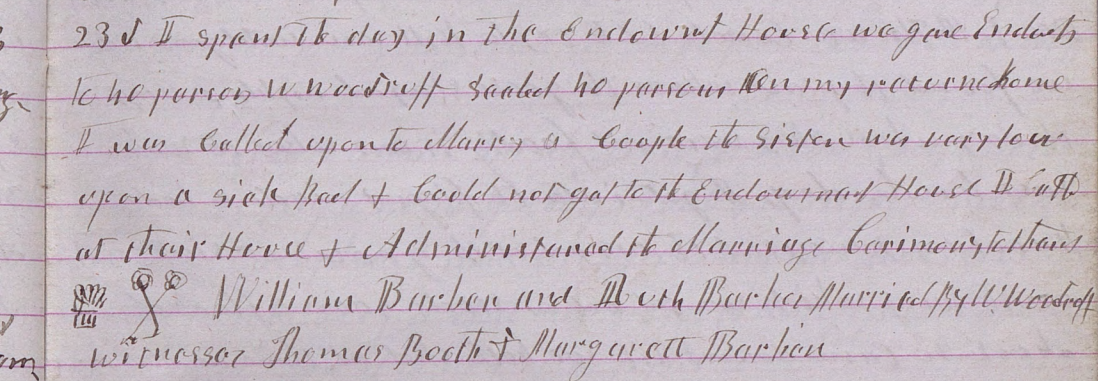 23d I spent the day in the Endowmt House we gave Endwts
to 40 persons W Woodruff Sealed 40 persons On my return home
I was Called upon to Marry a Couple the Sister was vary low
upon a sick Bed & Could not get to the Endowment House I
at their House & Administered the Marriage Cerimony to them
William Barber and Ruth Barber Married By W. Woodruff
witnesses Thomas Booth & Margarett Barber